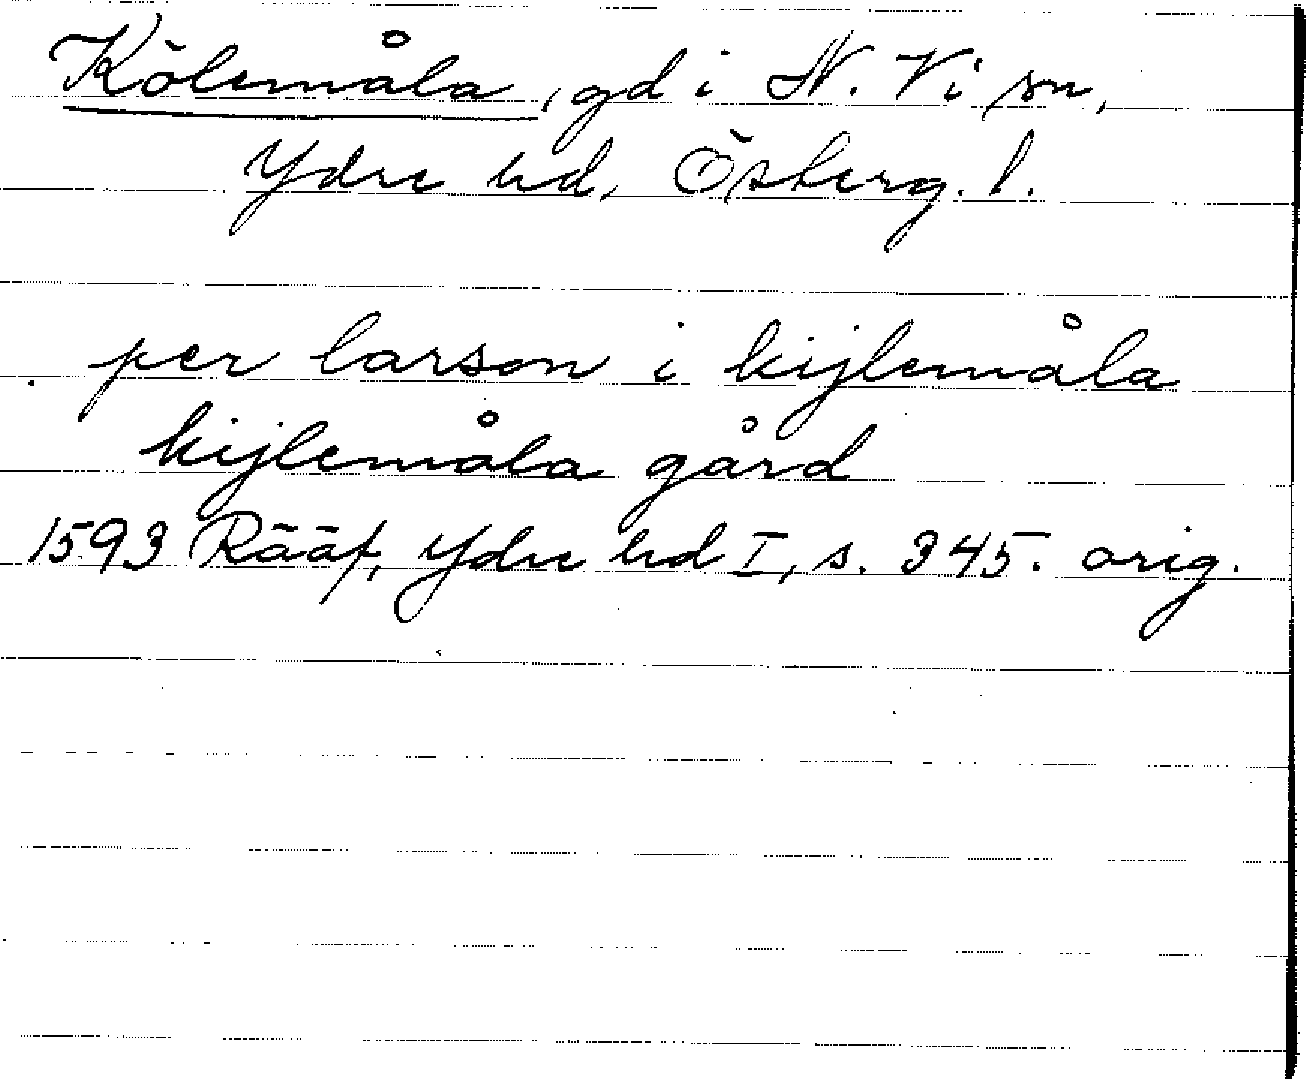 Kölemåla, gd i N. Vi sn,
Ydre hd, Östberg. l.
per larson i kijlemåla
kijlemåla gård
1593 Rääf, Ydre hd I, s. 345. orig.